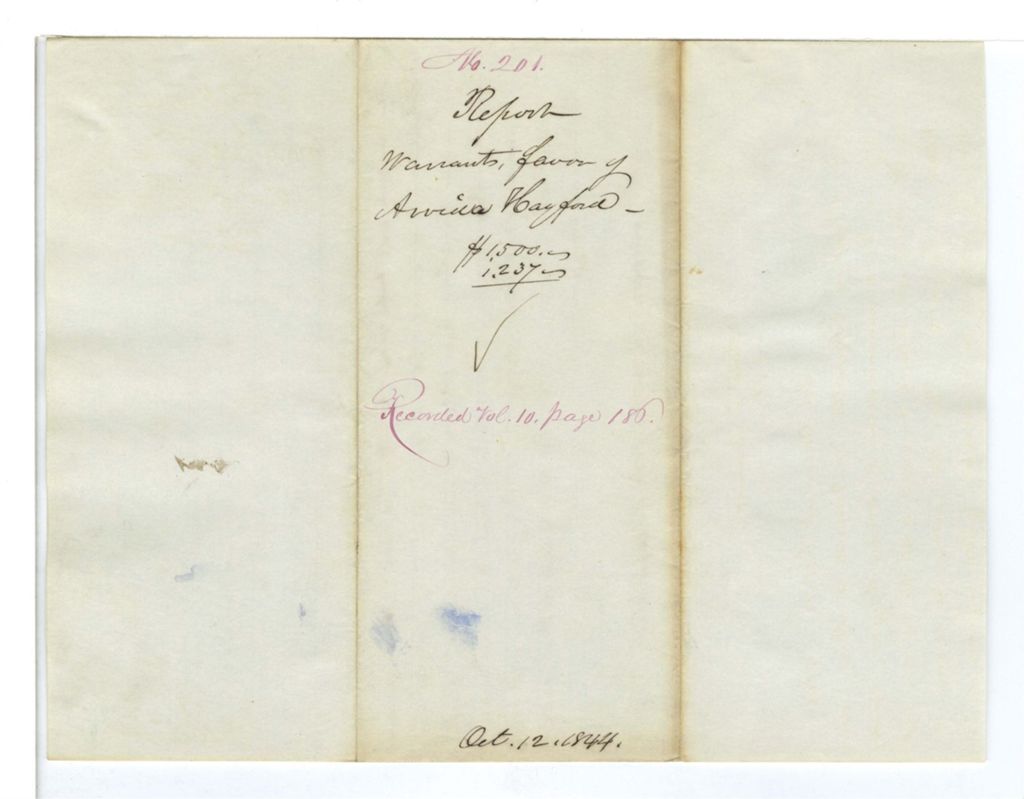 No. 201.
Report
Warrants, favor of
Arvida Hayford -
$1,500.
1.237
Recorded Vol. 10. page 186.
Oct. 12. 1844.